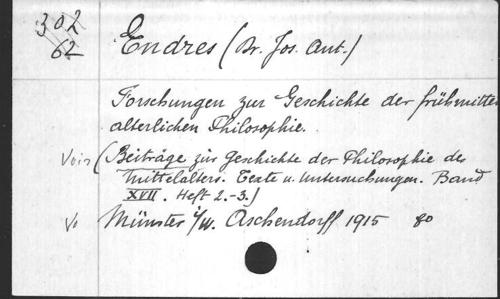 302
62
Endres (Dr. Jos. Ant.)
Forschungen zur Geschichte der frühmittel
alterlichen Philosophie.
Voir (Beiträge zur Geschichte der Philosophie des
Mittelalters. Texte u. Untersuchungen. Band
XVII. Heft 2.-3.)
Vo Münster i/W. Aschendorff 1915 80